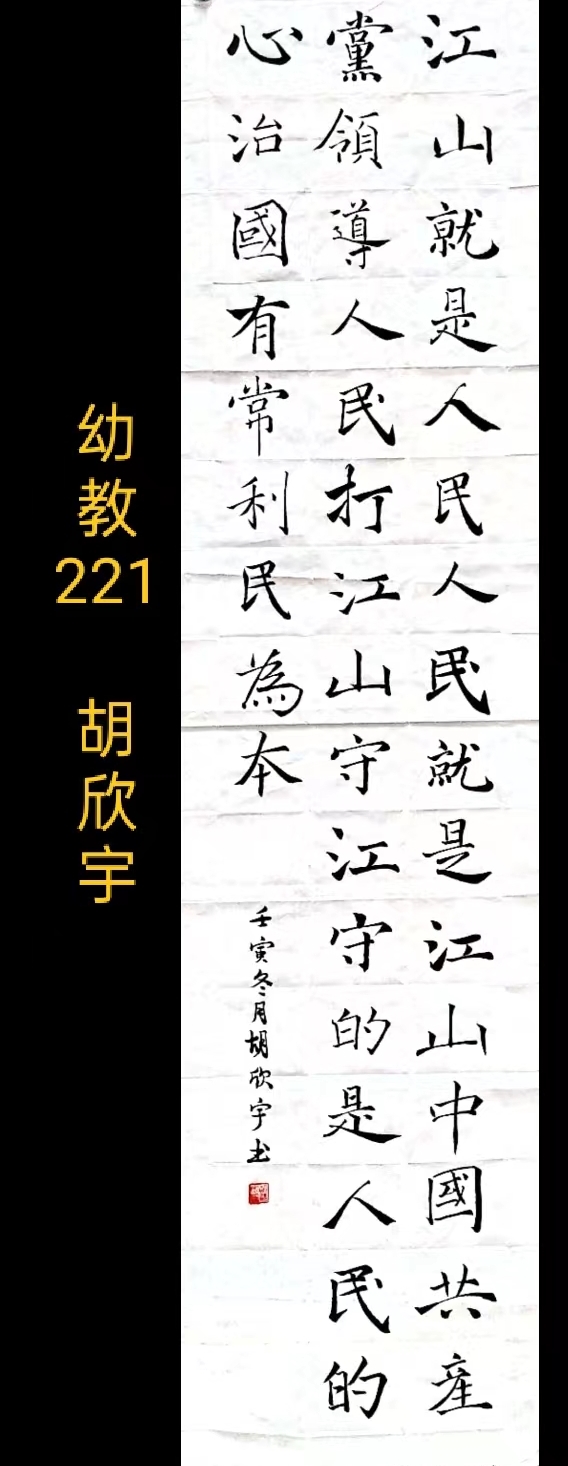 江山就是人民人民就是江山中國共產
黨領導人民打江山守江守的是人民的
心治國有常利民為本
壬寅冬月胡欣宇书
幼教
221
胡欣宇